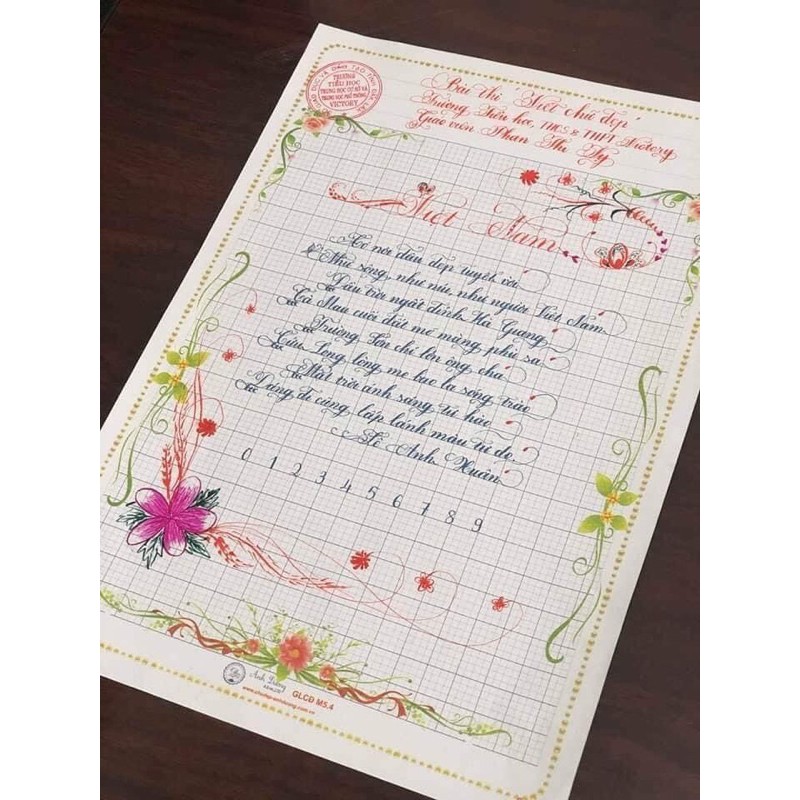 SỞ GIÁO DỤC VÀ ĐÀO TẠO TỈNH
TRƯỜNG
TIỂU HỌC
TRUNG HỌC CƠ SỞ VÀ
TRUNG HỌC PHỔ THÔNG
VICTORY
Bài thi "Viết chữ đẹp"
Trường Tiểu học, THCS & THPT Victory
Giáo viên Phan Thị Ty
Việt Nam
Có nơi đâu đẹp tuyệt vời
Như sông, như núi, như người Việt Nam
Đầu trời ngất đỉnh Hà Giang
Cà Mau cuối đất mơ màng phù sa
Trường Sơn chí lớn ông cha
Cửu Long lòng mẹ bao la sóng trào
Mặt trời ánh sáng tự hào
Dáng đi cũng lấp lánh màu tự do
Lê Anh Xuân
0 1 2 3 4 5 6 7 8 9
Ánh Dương
www.chudep-anhduong.com.vn
GLCĐ M5.4